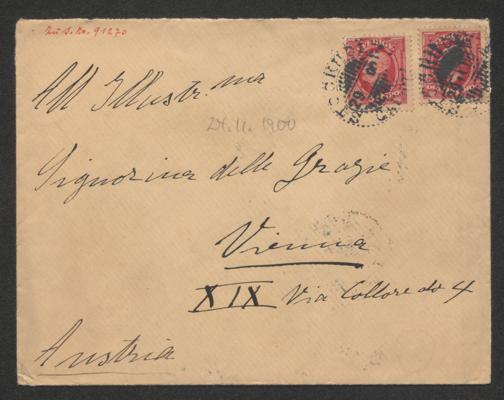 Zu S. Nr. 91270
All'Illustr.ma
29.11.1900
Signorina delle Grazie
Vienna
XIX Via Colloredo 4
Austria